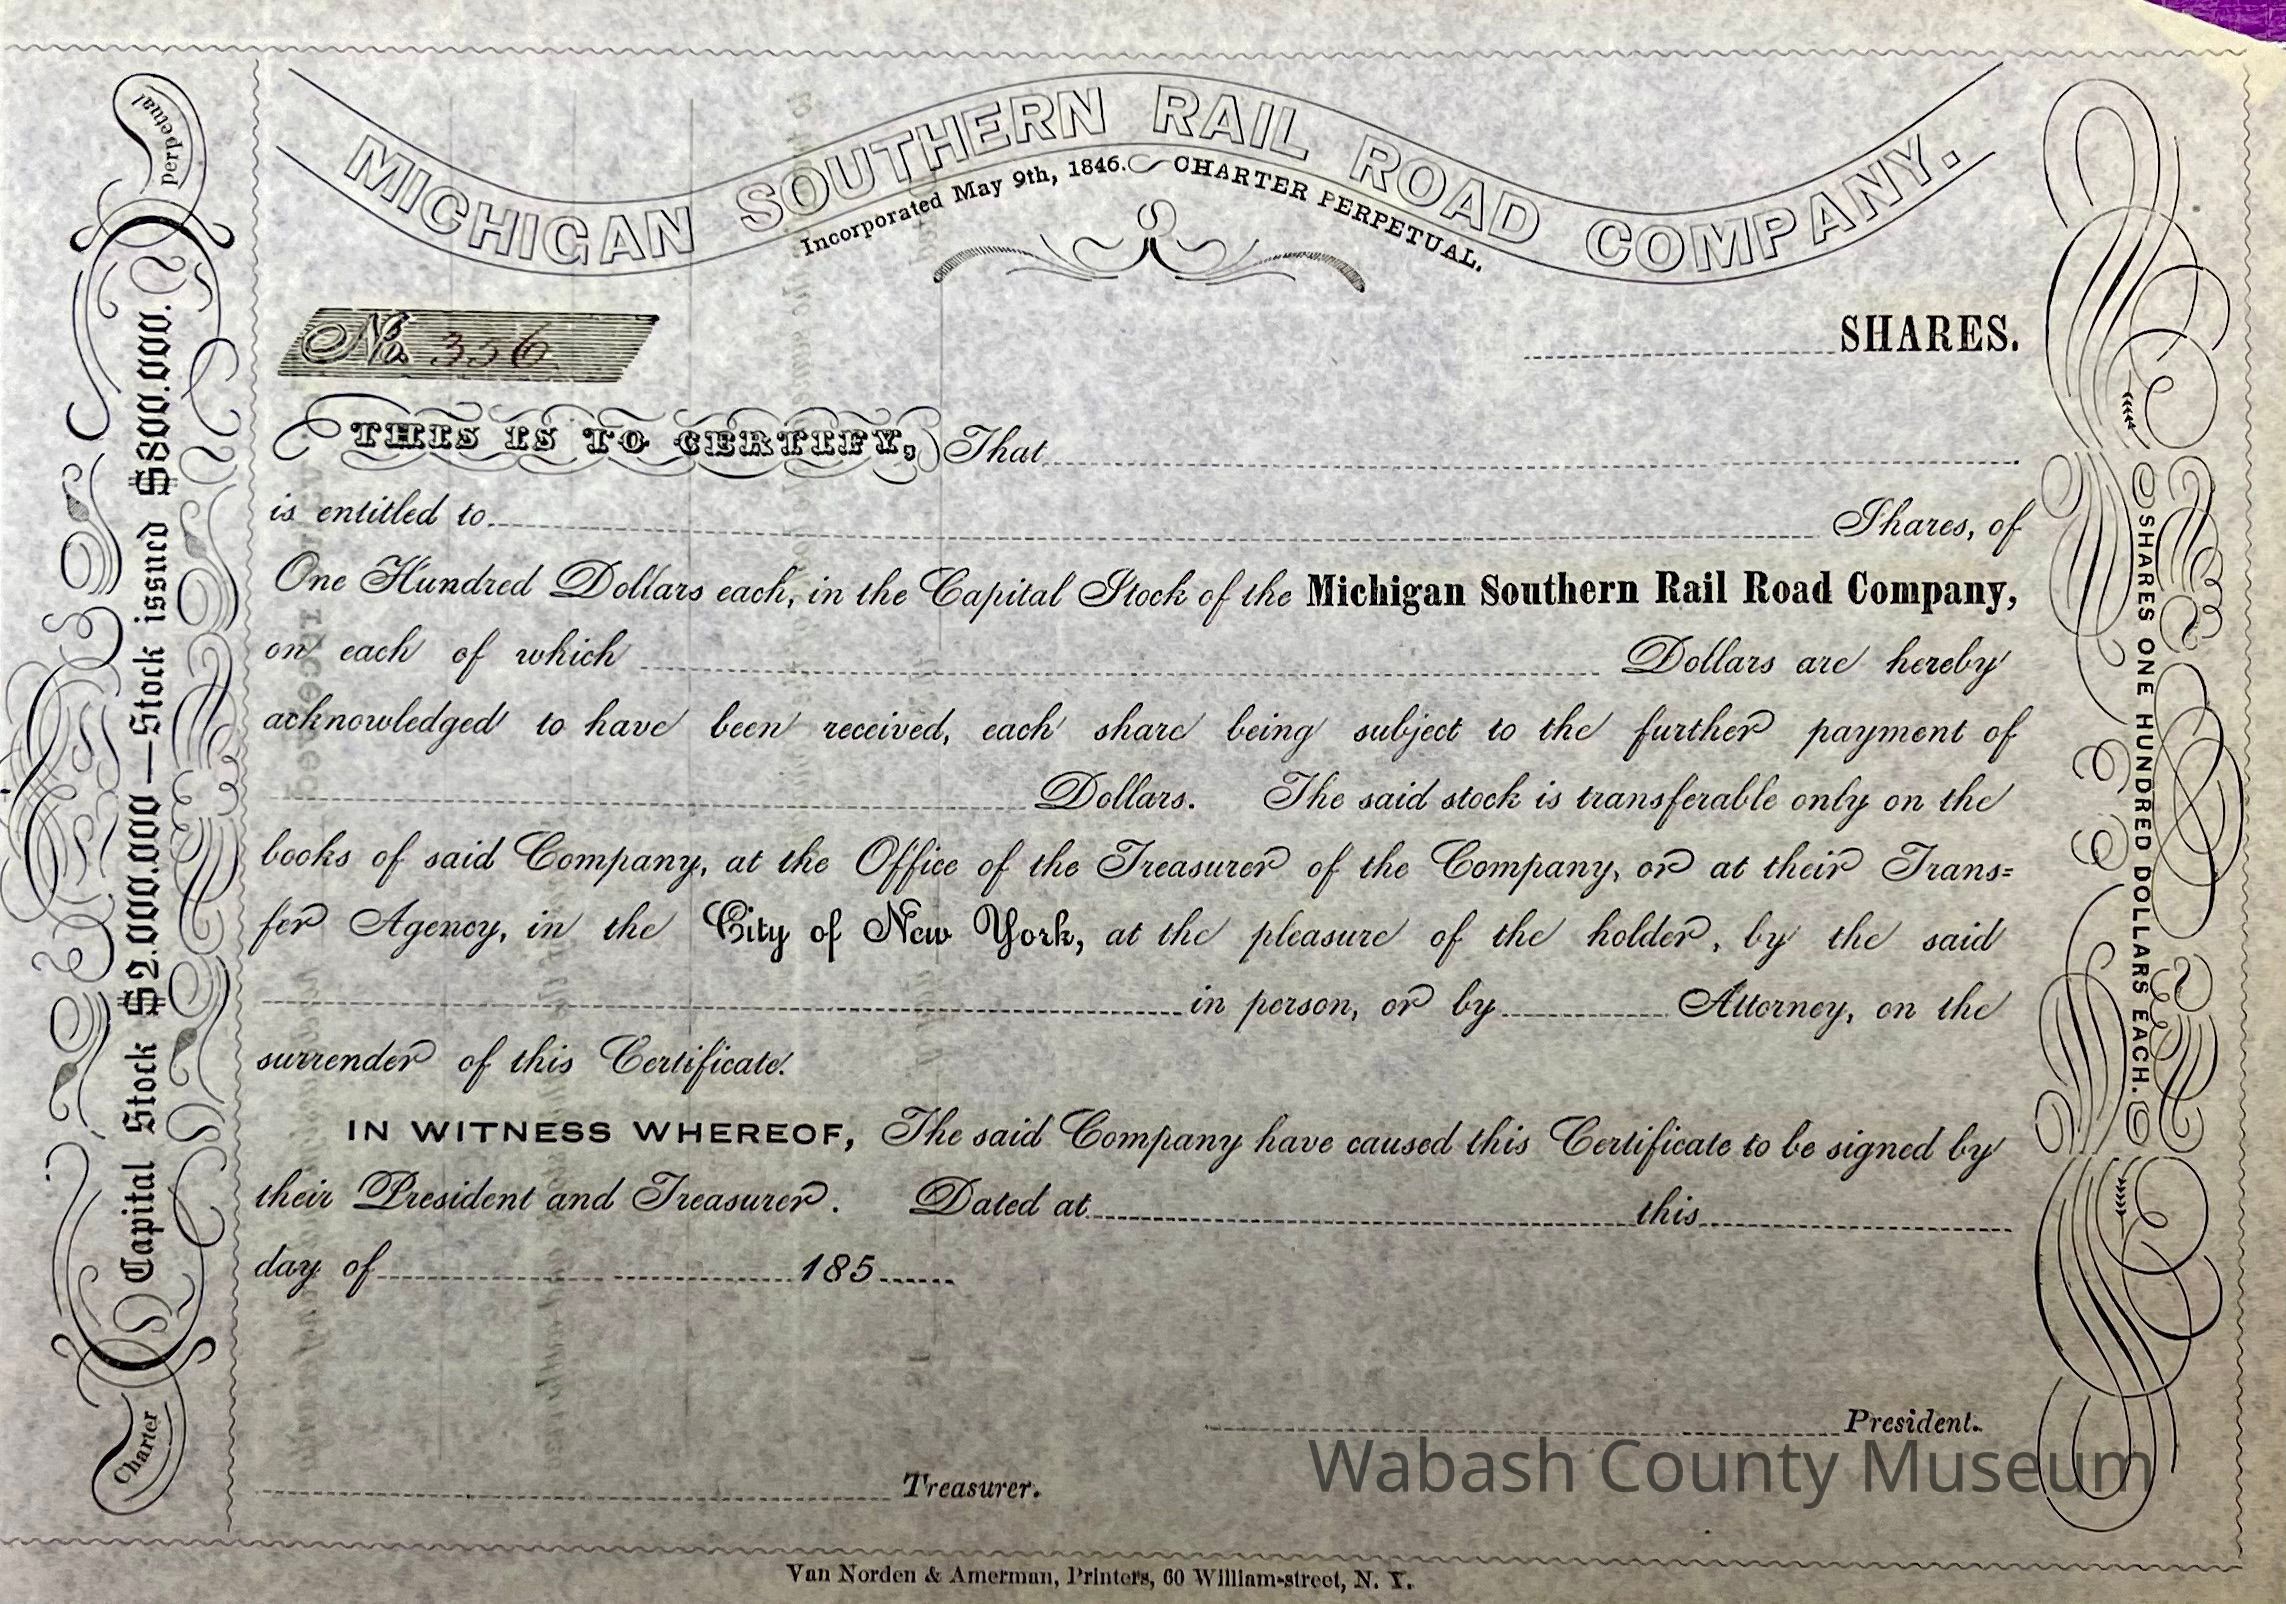 MICHIGAN SOUTHERN RAIL ROAD COMPANY.
Incorporated May 9th, 1846. CHARTER PERPETUAL.
No. 356
SHARES.
THIS IS TO CERTIFY, That
is entitled to Shares, of
One Hundred Dollars each, in the Capital Stock of the Michigan Southern Rail Road Company,
on each of which Dollars are hereby
acknowledged to have been received, each share being subject to the further payment of
Dollars. The said stock is transferable only on the
books of said Company, at the Office of the Treasurer of the Company, or at their Trans=
fer Agency, in the City of New York, at the pleasure of the holder, by the said
in person, or by Attorney, on the
surrender of this Certificate.
IN WITNESS WHEREOF, The said Company have caused this Certificate to be signed by
their President and Treasurer. Dated at this
day of 185
President.
Treasurer.
Van Norden & Amerman, Printers, 60 William-street, N. Y.
Charter
Capital Stock $2.000.000—Stock issued $800.000.
perpetual
SHARES ONE HUNDRED DOLLARS EACH.
Wabash County Museum